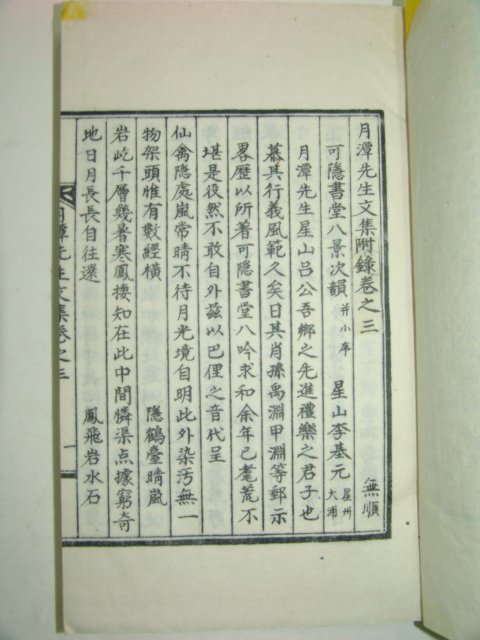 月潭先生文集附錄卷之三
無順
可隱書堂八景次韻 并小序 星山李基元 星州大浦
月潭先生星山呂公吾鄉之先進禮樂之君子也
慕其行義風範久矣日其肖孫禹淵甲淵等郵示
畧歷以所著可隱書堂八吟求和余年已耄荒不
堪是役然不敢自外玆以巴俚之音代呈
仙禽隱處嵐常晴不待月光境自明此外染汚無一
物架頭惟有數經橫 隱鶴臺晴嵐
岩屹千層幾暑寒鳳捿知在此中間憐渠点據窮奇
地日月長長自往還 鳳飛岩水石
月潭先生文集卷之三
一